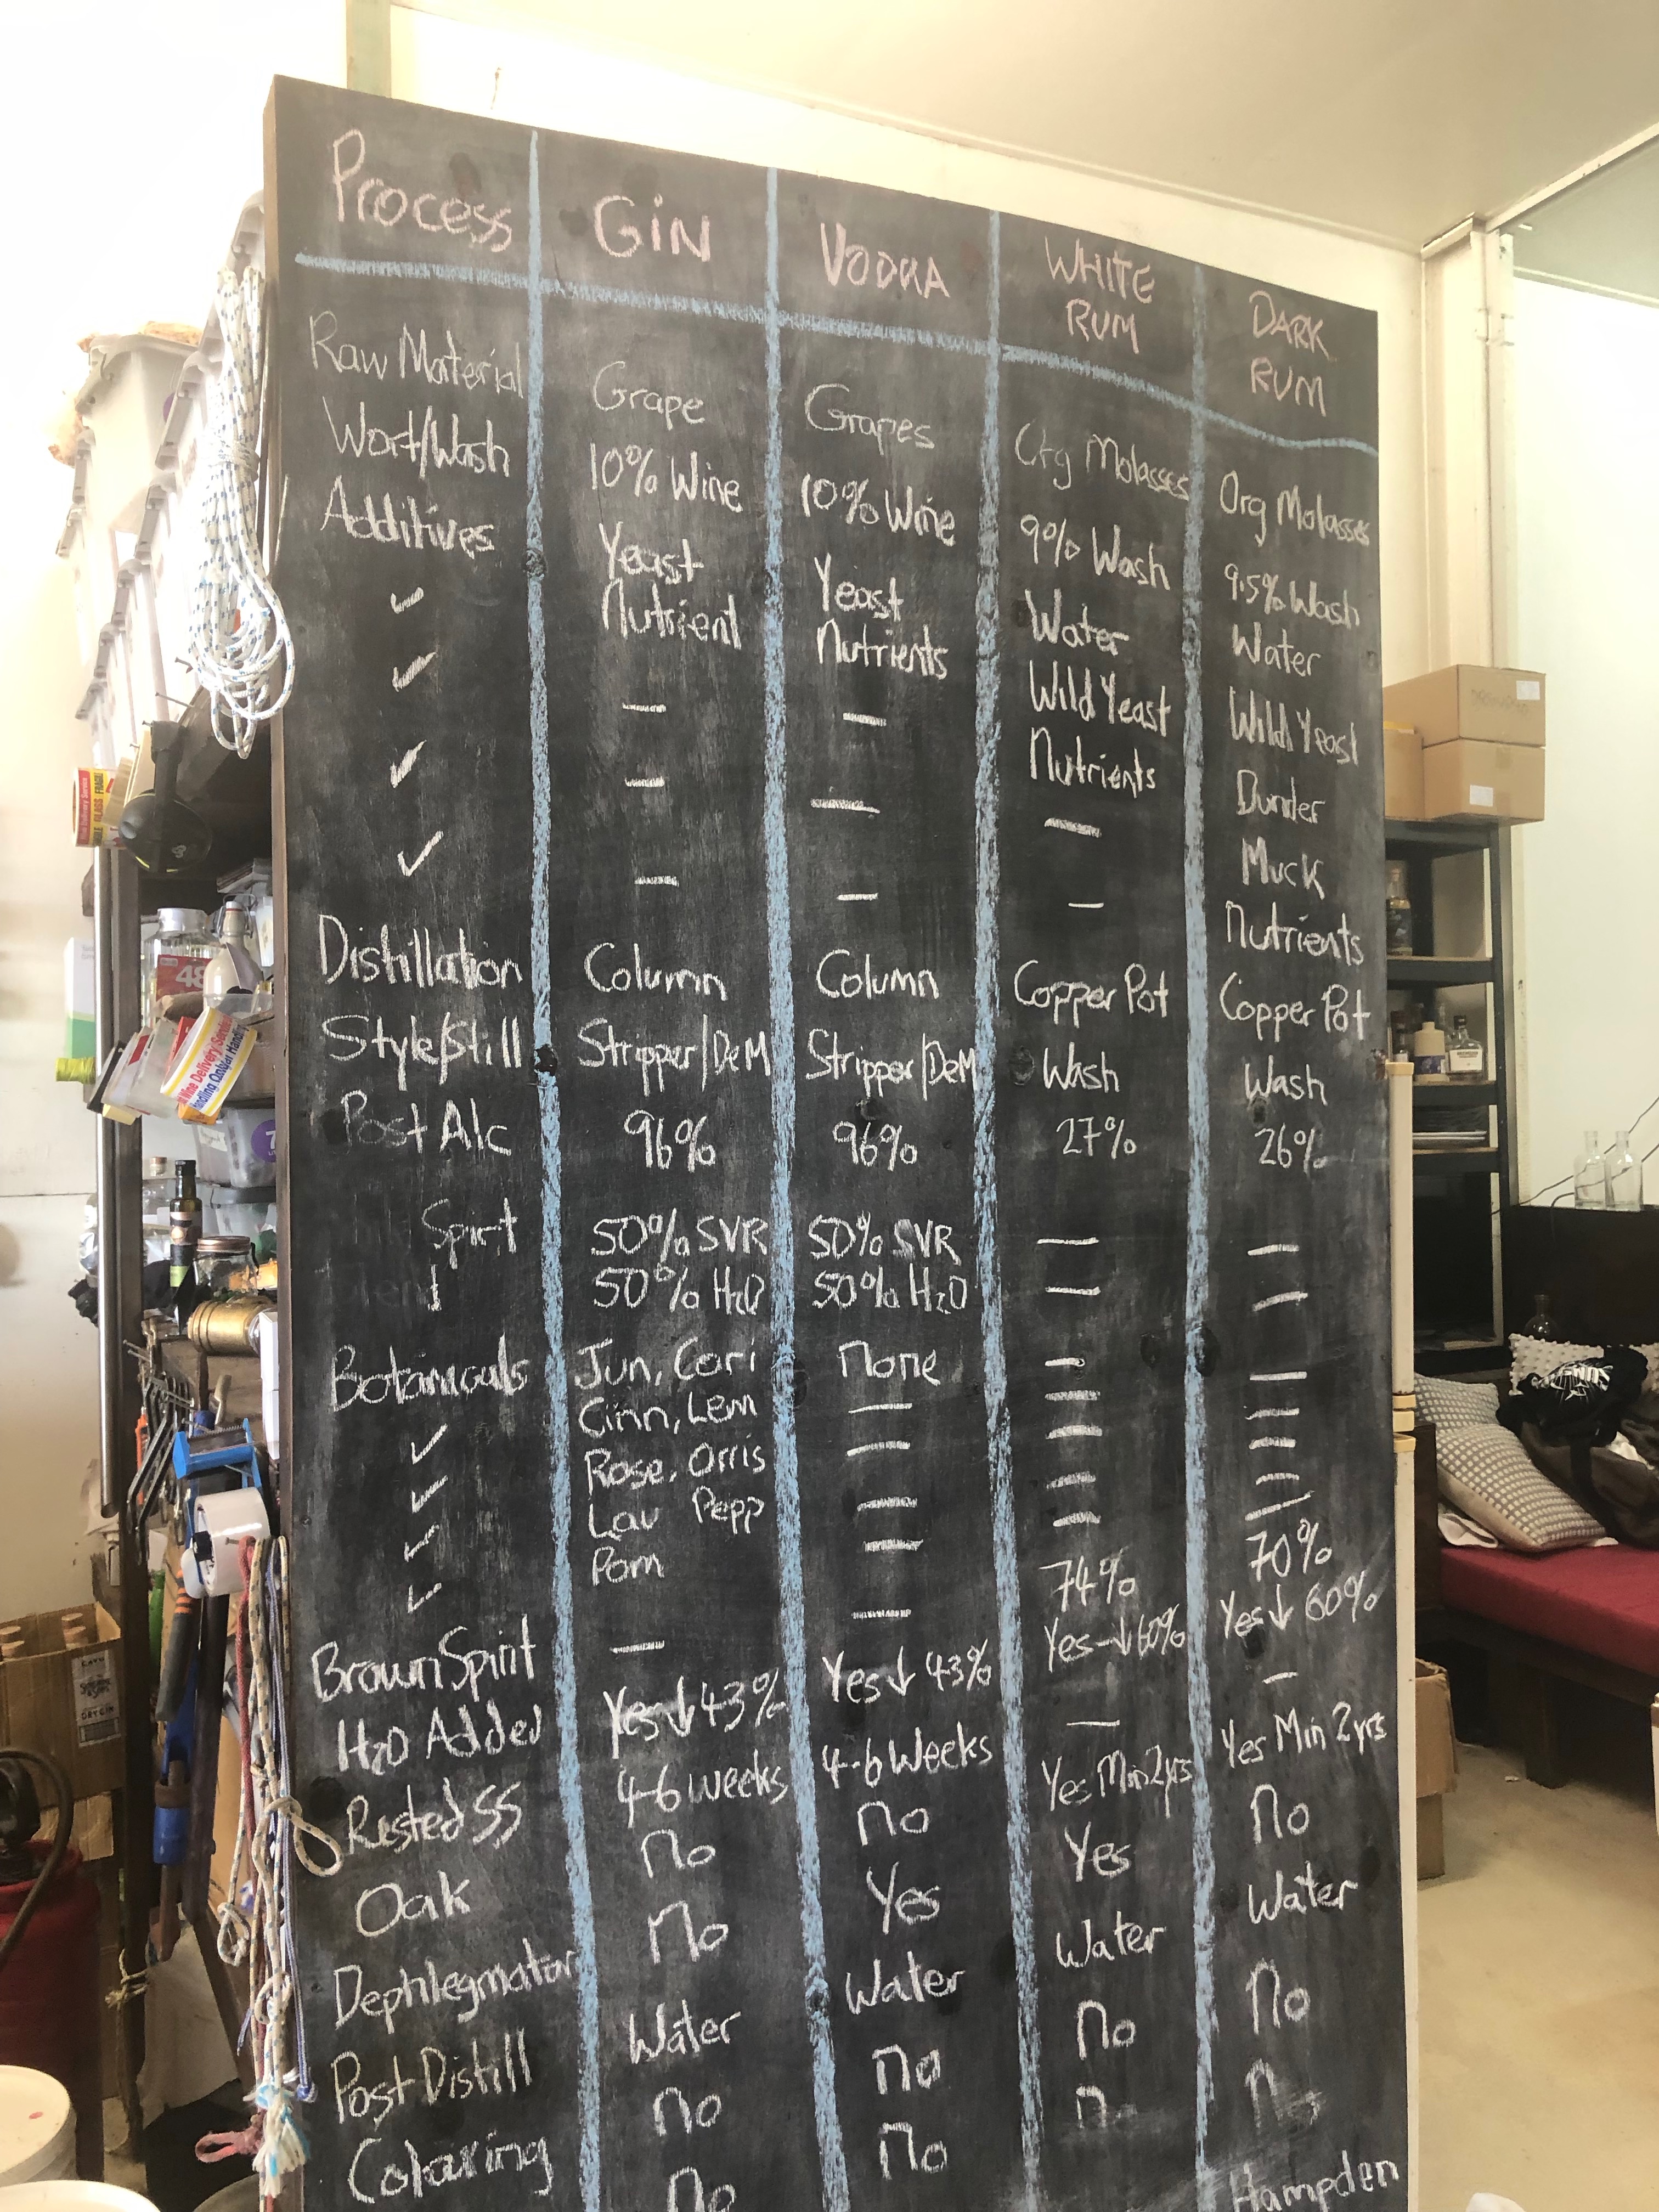 Process GIN VODKA WHITE RUM DARK RUM
Raw Material Grape Grapes Org Molasses Org Molasses
Wort/Wash 10% Wine 10% Wine 9% Wash 9.5% Wash
Additives Yeast Yeast Water Water
✓ Nutrient Nutrients Wild Yeast Wild Yeast
✓ — — Nutrients Dunder
✓ — — — Muck
✓ — — — Nutrients
Distillation Column Column Copper Pot Copper Pot
Style/Still Stripper/DeM Stripper/DeM Wash Wash
Post Alc 96% 96% 27% 26%
Spirit 50% SVR 50% SVR — —
↓ 50% H2O 50% H2O — —
Botanicals Jun, Cori None — —
✓ Cinn, Lem — — —
✓ Rose, Orris — — —
✓ Lav Pepp — — —
✓ Pom — — —
Brown Spirit — — 74% 70%
H2O Added Yes ↓ 43% Yes ↓ 43% Yes ↓ 60% Yes ↓ 60%
Rested SS 4-6 weeks 4-6 Weeks — —
Oak No No Yes Min 2yrs Yes Min 2 yrs
Dephlegmator No Yes Yes No
Post Distill Water Water Water Water
Colouring No No No No
No No No
Hampden
48
FRAGILE
DRY GIN